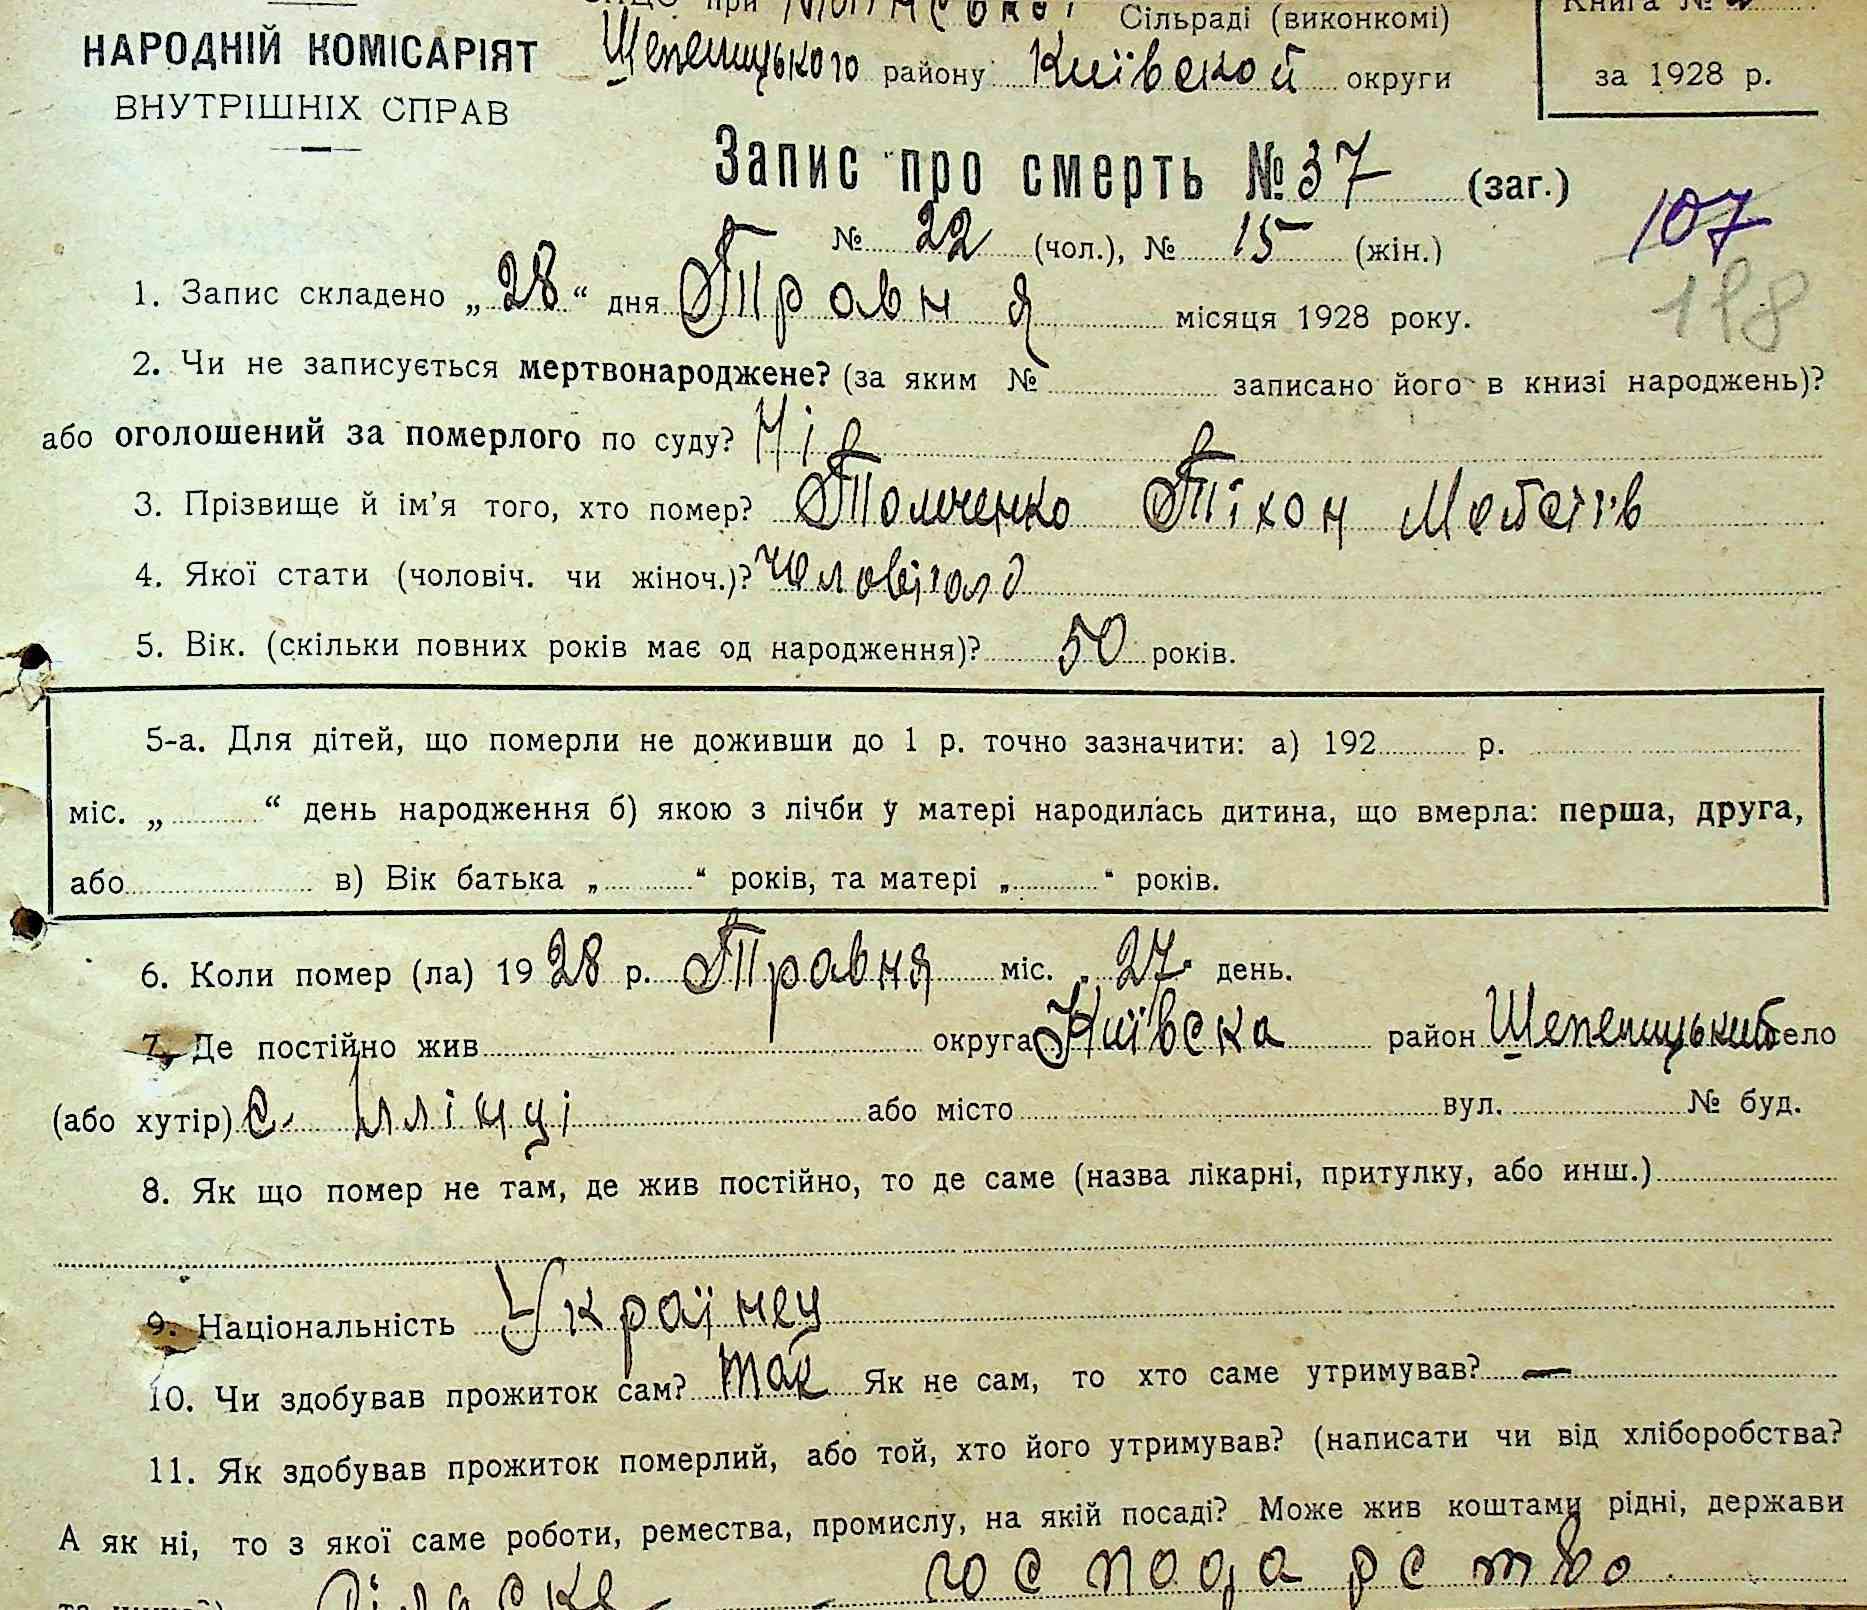 при Сільраді (виконкомі)
Книга №
НАРОДНІЙ КОМІСАРІЯТ
ВНУТРІШНІХ СПРАВ
Шепелицького району Київской округи
за 1928 р.
Запис про смерть № 37 (заг.)
№ 22 (чол.), № 15 (жін.)
107
198
1. Запис складено „ 28 “ дня Травня місяця 1928 року.
2. Чи не записується мертвонароджене? (за яким № записано його в книзі народжень)?
або оголошений за померлого по суду? Ні
3. Прізвище й ім'я того, хто помер? Толченко Тіхон
4. Якої стати (чоловіч. чи жіноч.)?
5. Вік. (скільки повних років має од народження)? 50 років.
5-а. Для дітей, що померли не доживши до 1 р. точно зазначити: а) 192 р.
міс. „ “ день народження б) якою з лічби у матері народилась дитина, що вмерла: перша, друга,
або в) Вік батька „ “ років, та матері „ “ років.
6. Коли помер (ла) 19 28 р. Травня міс. 27 день.
7. Де постійно жив округа Київска район Шепелицький село
(або хутір) с. Іллінці або місто вул. № буд.
8. Як що помер не там, де жив постійно, то де саме (назва лікарні, притулку, або инш.)
9. Національність Українец
10. Чи здобував прожиток сам? так Як не сам, то хто саме утримував? —
11. Як здобував прожиток померлий, або той, хто його утримував? (написати чи від хліборобства?
А як ні, то з якої саме роботи, ремества, промислу, на якій посаді? Може жив коштами рідні, держави
господарство